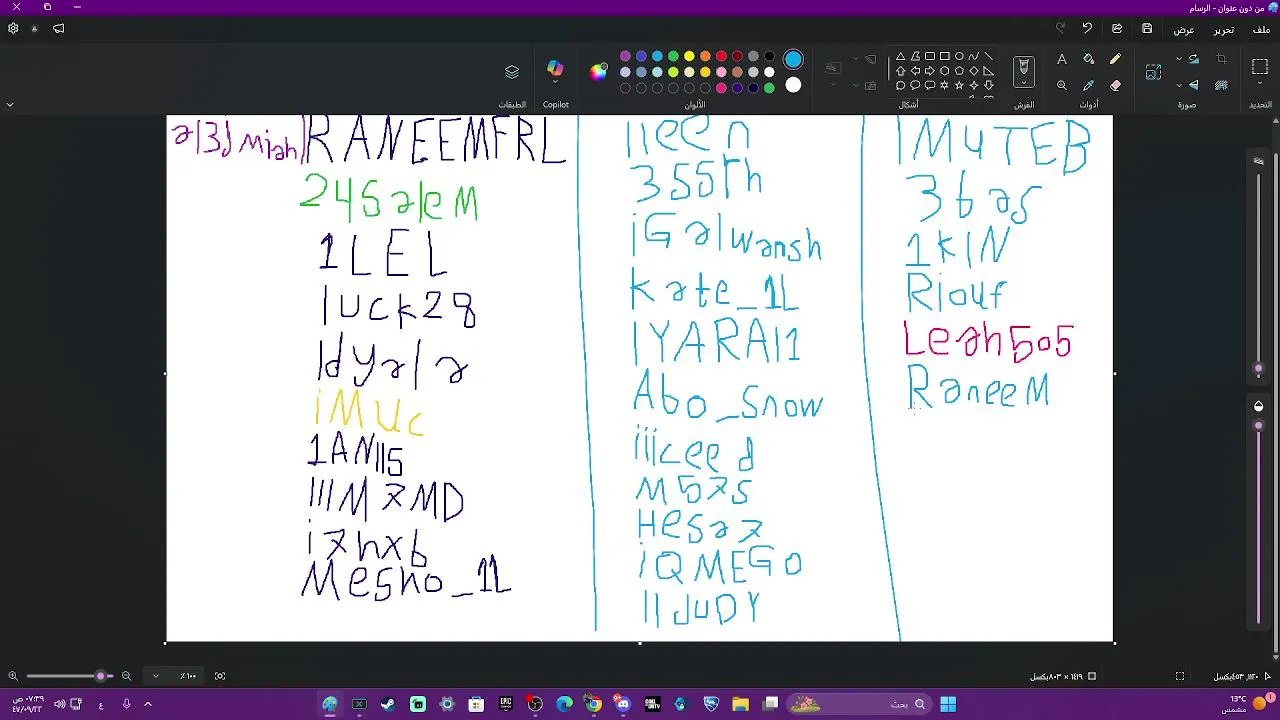 من دون عنوان - الرسام
ملف
تحرير
عرض
التحديد
صورة
أدوات
الفرش
أشكال
الألوان
Copilot
الطبقات
al3d miah
RANEEMFRL
24SaleM
1LEL
luck28
ldyala
iMUc
1AN||5
|||M7MD
i7hx6
Mesho_1L
||een
355rh
iGalwansh
kate_1L
|YARA|1
Abo_Snow
iiiceed
M57s
Hesa7
iQMEGO
||JuDY
|M4TEB
36as
1K|N
Riouf
Leah505
RaneeM
٪١٠٠
بحث
13°C
مشمس